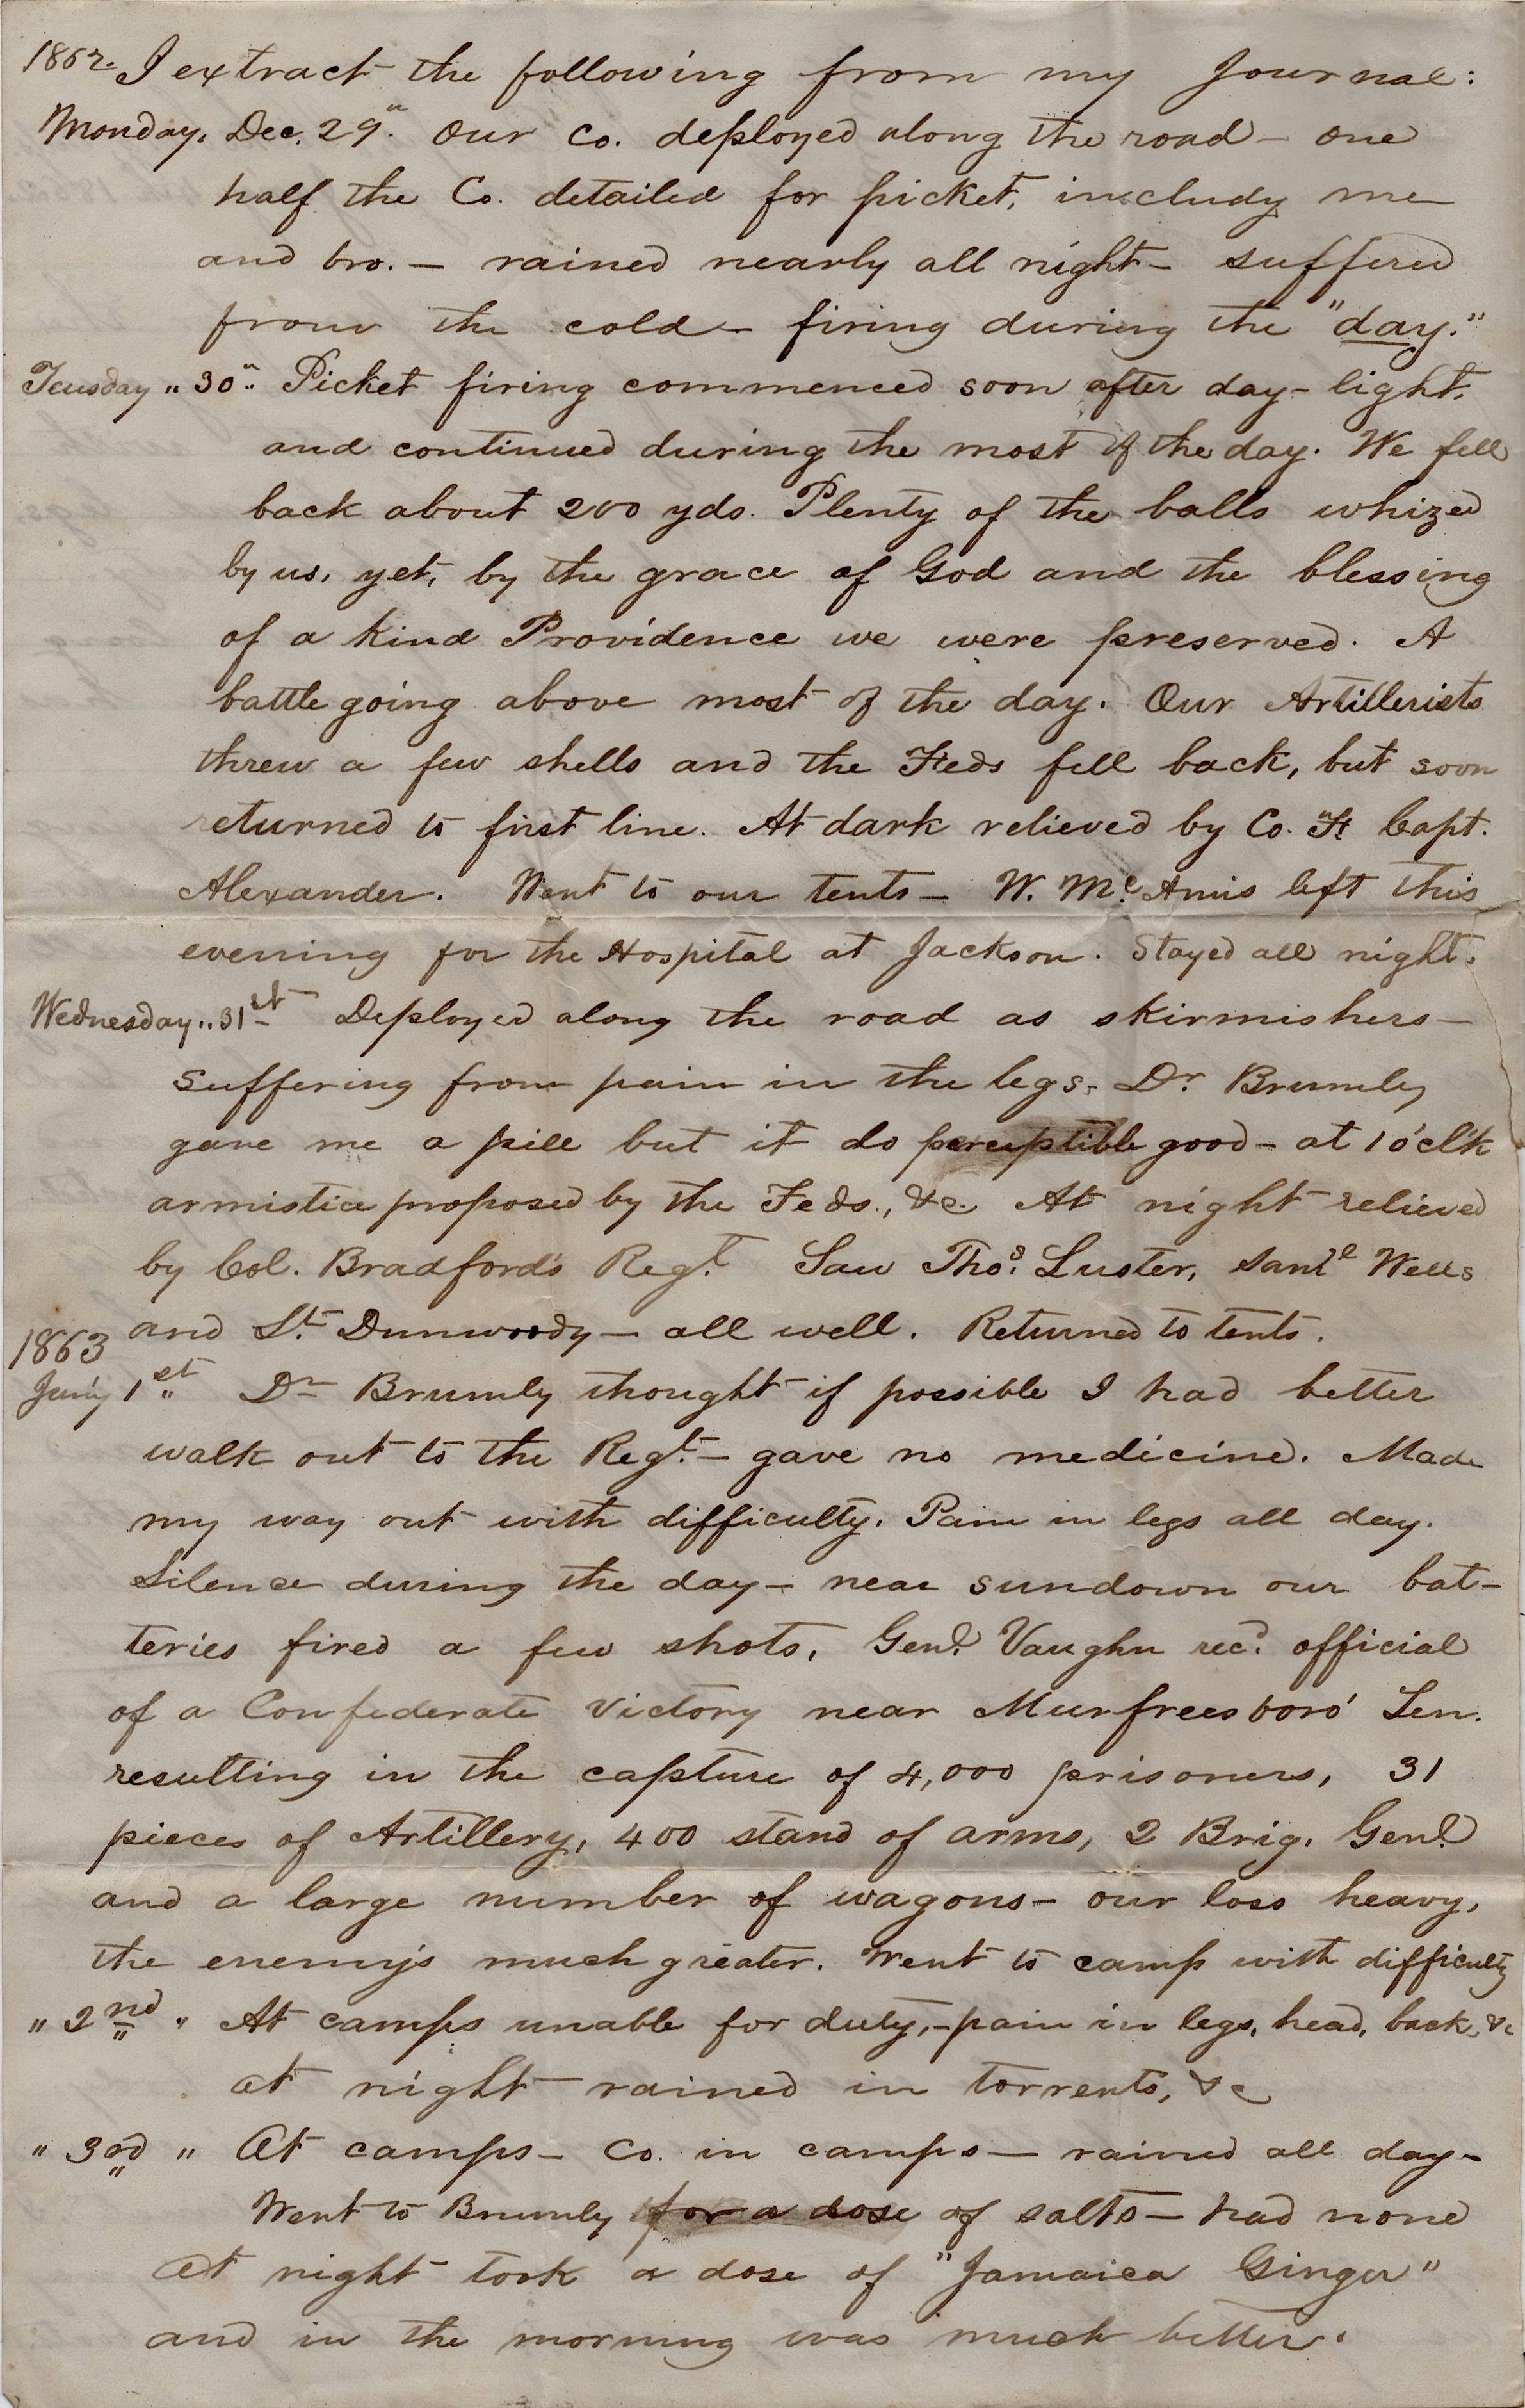 1862. I extract the following from my Journal:
Monday, Dec. 29". Our Co. deployed along the road – one
half the Co. detailed for picket, includg me
and bro. – rained nearly all night – suffered
from the cold – firing during the "day."
Teusday " 30". Picket firing commenced soon after day-light,
and continued during the most of the day. We fell
back about 200 yds. Plenty of the balls whized
by us, yet, by the grace of God and the blessing
of a kind Providence we were preserved. A
battle going above most of the day. Our Artillerists
threw a few shells and the Feds fell back, but soon
returned to first line. At dark relieved by Co. "F" Capt.
Alexander. Went to our tents – W. McAmis left this
evening for the Hospital at Jackson. Stayed all night.
Wednesday " 31st Deployed along the road as skirmishers –
suffering from pain in the legs. Dr. Brumly
gave me a pill but it do perceptible good – at 1 o'cl'k
armistice proposed by the Feds., &c. At night relieved
by Col. Bradford's Regt. Saw Thos. Luster, Saml Wells
and Lt. Dunwoody – all well. Returned to tents.
1863
Jan'y 1st " Dr Brumly thought if possible I had better
walk out to the Regt. – gave no medicine. Made
my way out with difficulty. Pain in legs all day.
Silence during the day – near sundown our bat-
teries fired a few shots. Genl. Vaughn recd. official
of a Confederate victory near Murfreesboro' Ten.
resulting in the capture of 4,000 prisoners, 31
pieces of Artillery, 400 stand of arms, 2 Brig. Genl.
and a large number of wagons – our loss heavy,
the enemy's much greater. Went to camp with difficulty
" 2nd " At camps unable for duty, – pain in legs, head, back, &c
at night rained in torrents, &c
" 3rd " At camps – Co. in camps – rained all day –
Went to Brumly for a dose of salts – had none
At night took a dose of "Jamaica Ginger"
and in the morning was much better.